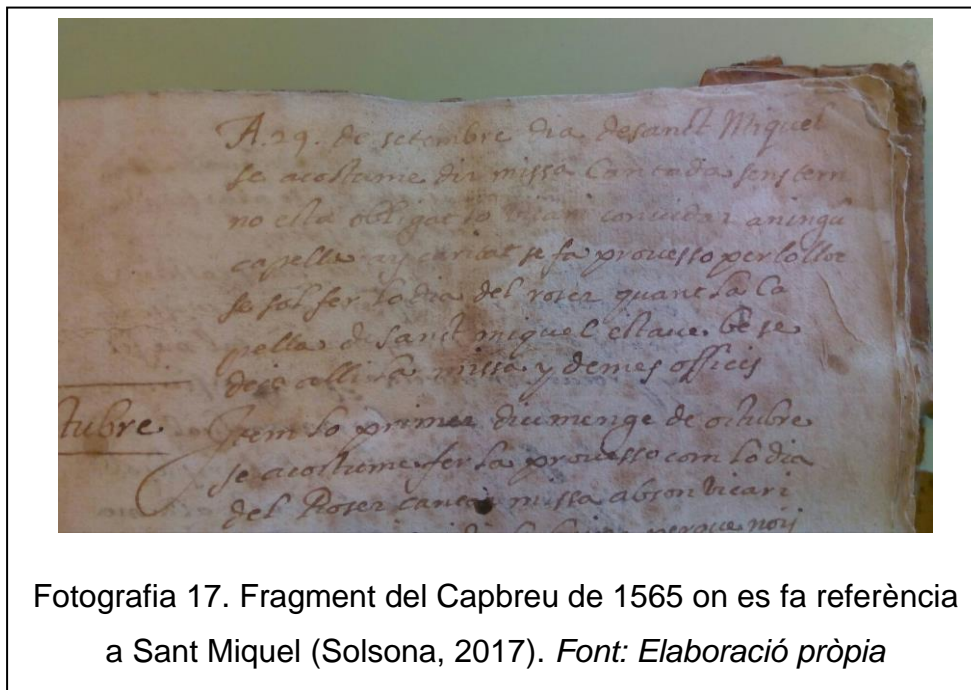 A.29. de setembre dia de sanct Miquel
se acostume dir missa Cantada sens tem
no esta obligat lo vicari convidar a ningu
capella ay caritat se fa processo per lo lloc
se sol fer lo dia del roser quant la Ca
pella de sanct miquel estaue be se
deie alli la missa y demes officis
tubre
Item lo primer diumenge de octubre
se acostume fer la processo com lo dia
del Roser cantar missa ab son Vicari
perque noy
Fotografia 17. Fragment del Capbreu de 1565 on es fa referència
a Sant Miquel (Solsona, 2017). Font: Elaboració pròpia